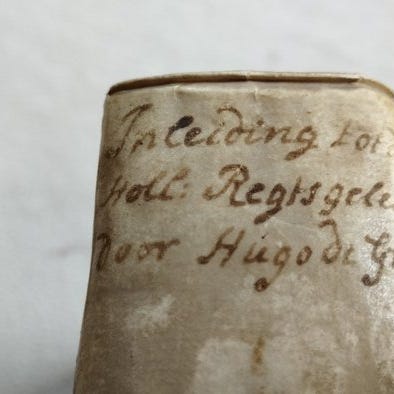 Inleiding tot
Holl: Regtsgele
door Hugo de G